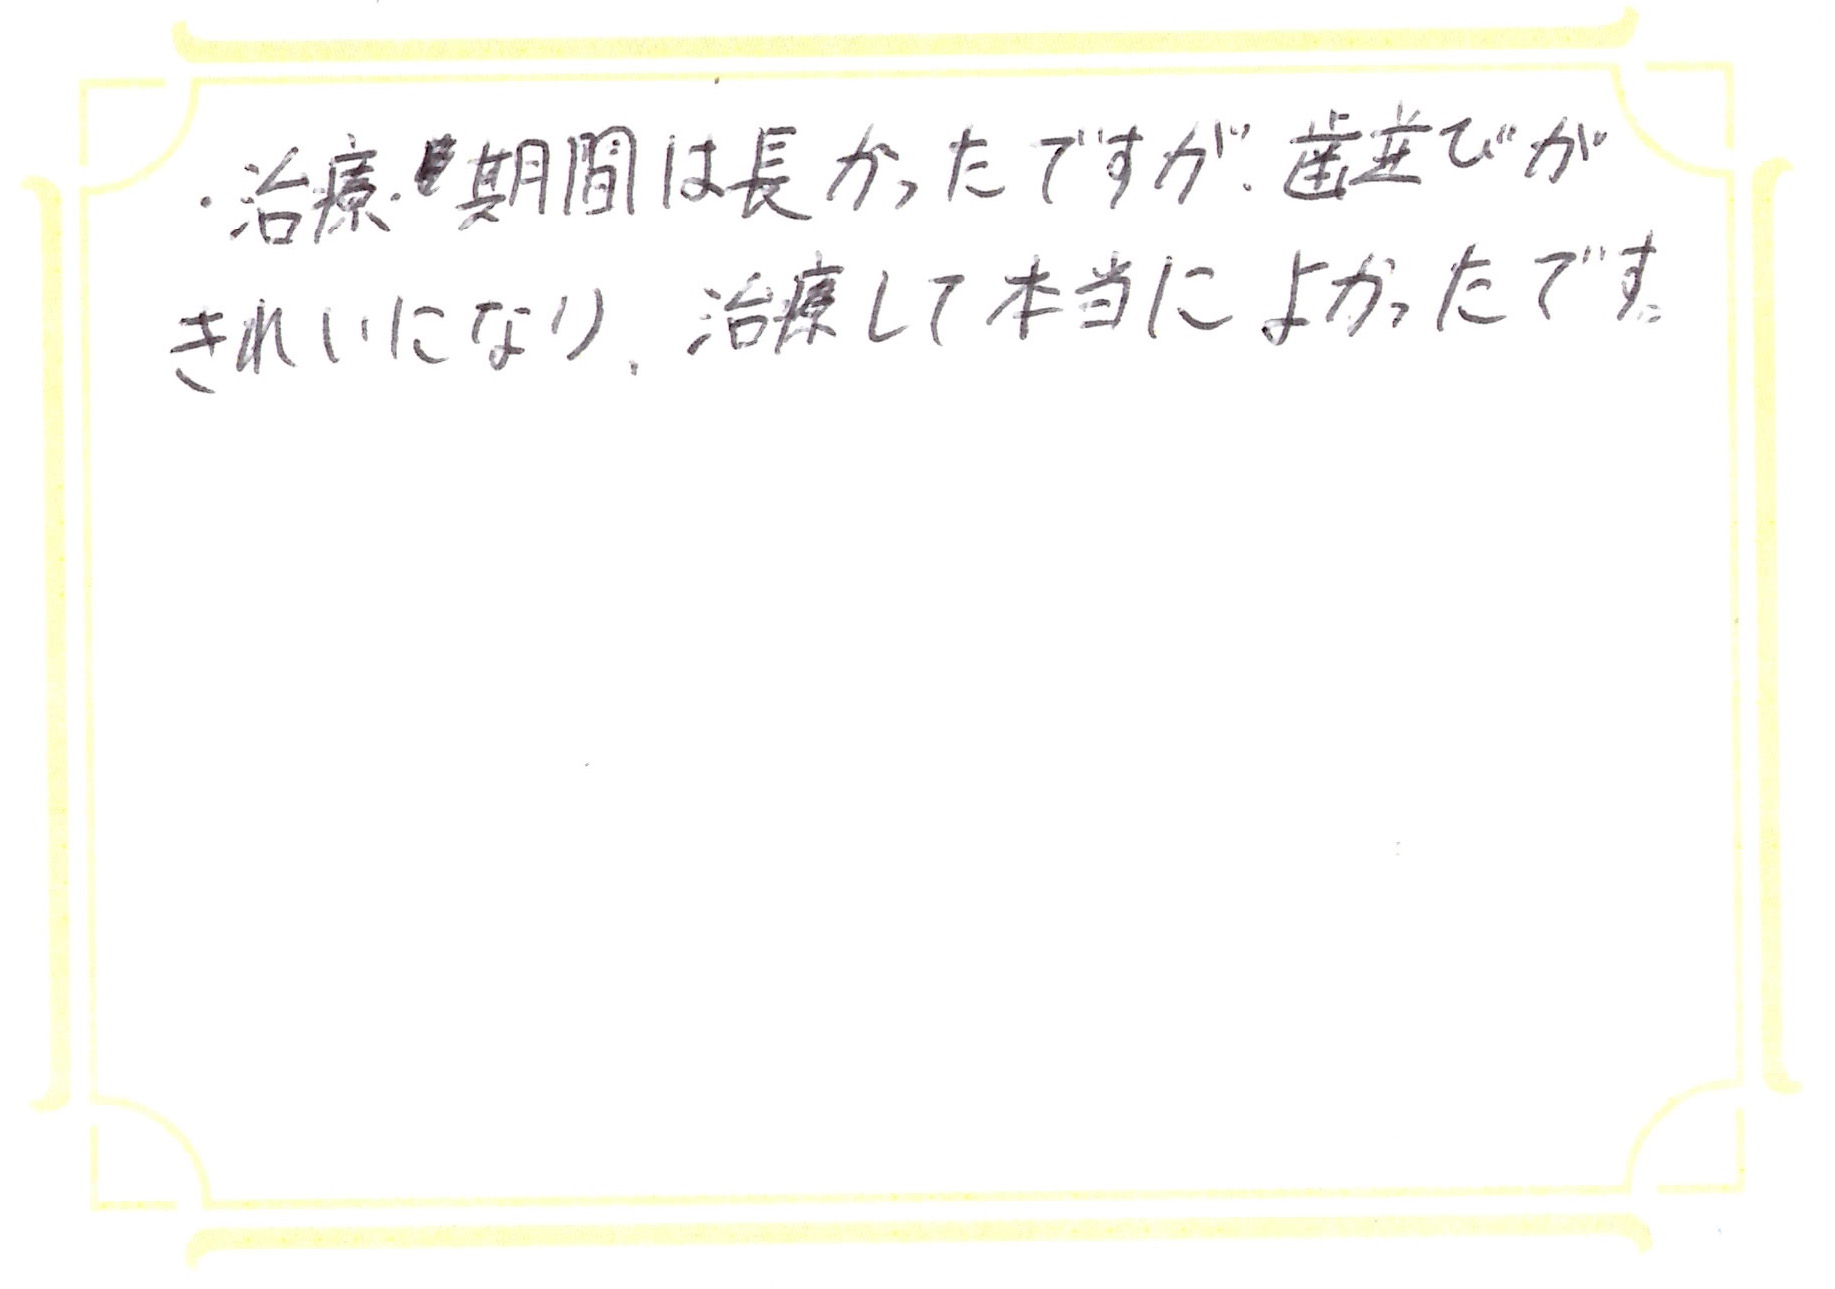 ・治療期間は長かったですが、歯並びが
きれいになり、治療して本当によかったです。